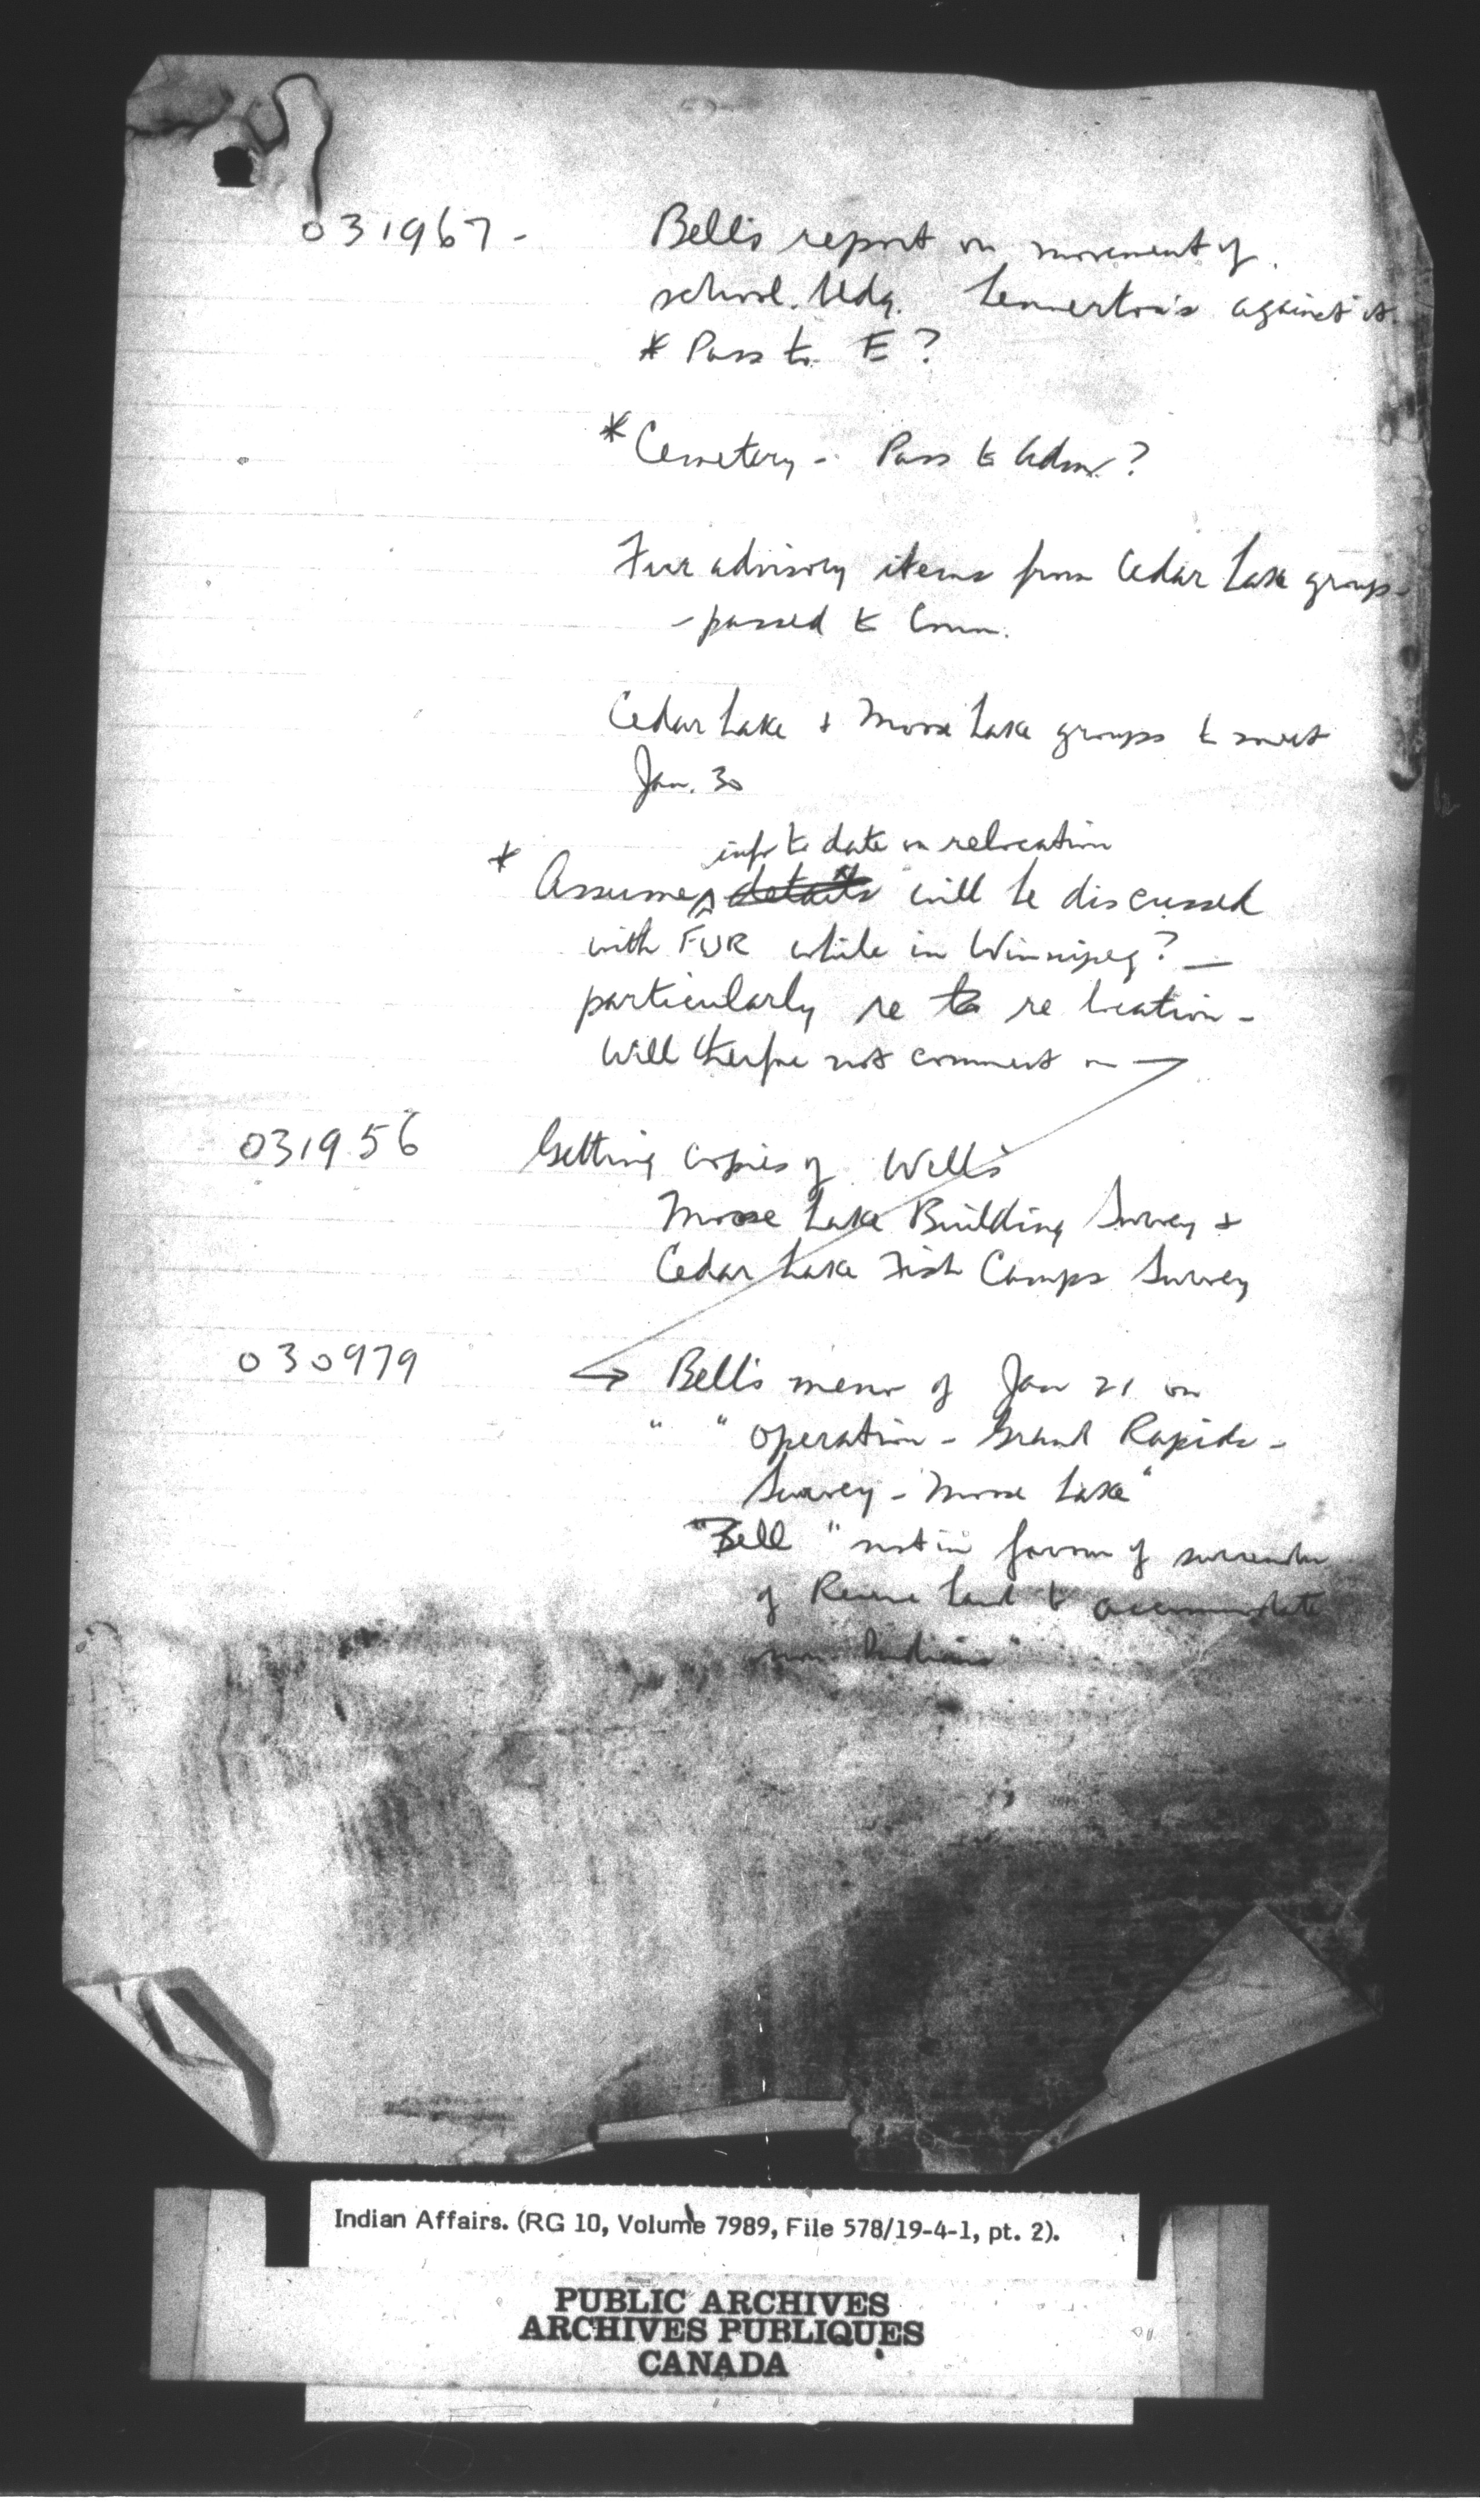 031967 - Bell's report on movement of
school bldg. Lemmerton's against it.
* Pass to E ?
* Cemetery - Pass to Adm. ?
Fur advisory items from Cedar Lake group -
- passed to Comm.
Cedar Lake + Moose Lake groups to meet
Jan. 30
info to date on relocation
* Assume details will be discussed
with FUR while in Winnipeg? -
particularly re to re location -
Will therfore not comment on
031956 Getting copies of Well's
Moose Lake Building Survey +
Cedar Lake Fish Camps Survey
030979 Bell's memo of Jan 21 on
" " operation - Grand Rapids -
Survey - Moose Lake"
Bell "not in favour of surrender
of Reserve land to accommodate
non Indians"
Indian Affairs. (RG 10, Volume 7989, File 578/19-4-1, pt. 2).
PUBLIC ARCHIVES
ARCHIVES PUBLIQUES
CANADA